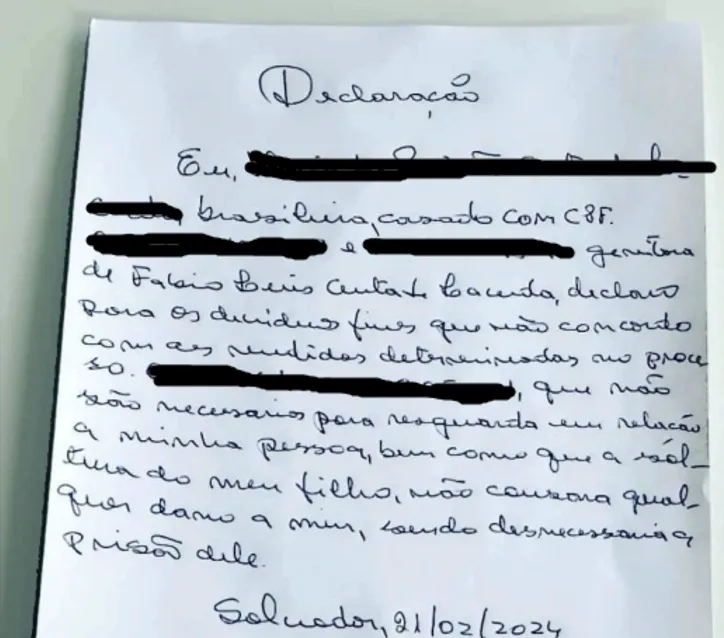 Declaração
Eu,
brasileira, casado com C8F.
e genitora
de Fabio Luis Lacerda, declaro
para os devidos fins que não concordo
com as medidas determinadas no proce
so. , que não
são necessarias para resguarda em relação
a minha pessoa, bem como que a sol-
tura do meu filho, não causara qual-
quer dano a mim, sendo desnecessaria a
prisão dele.
Salvador, 21/02/2024